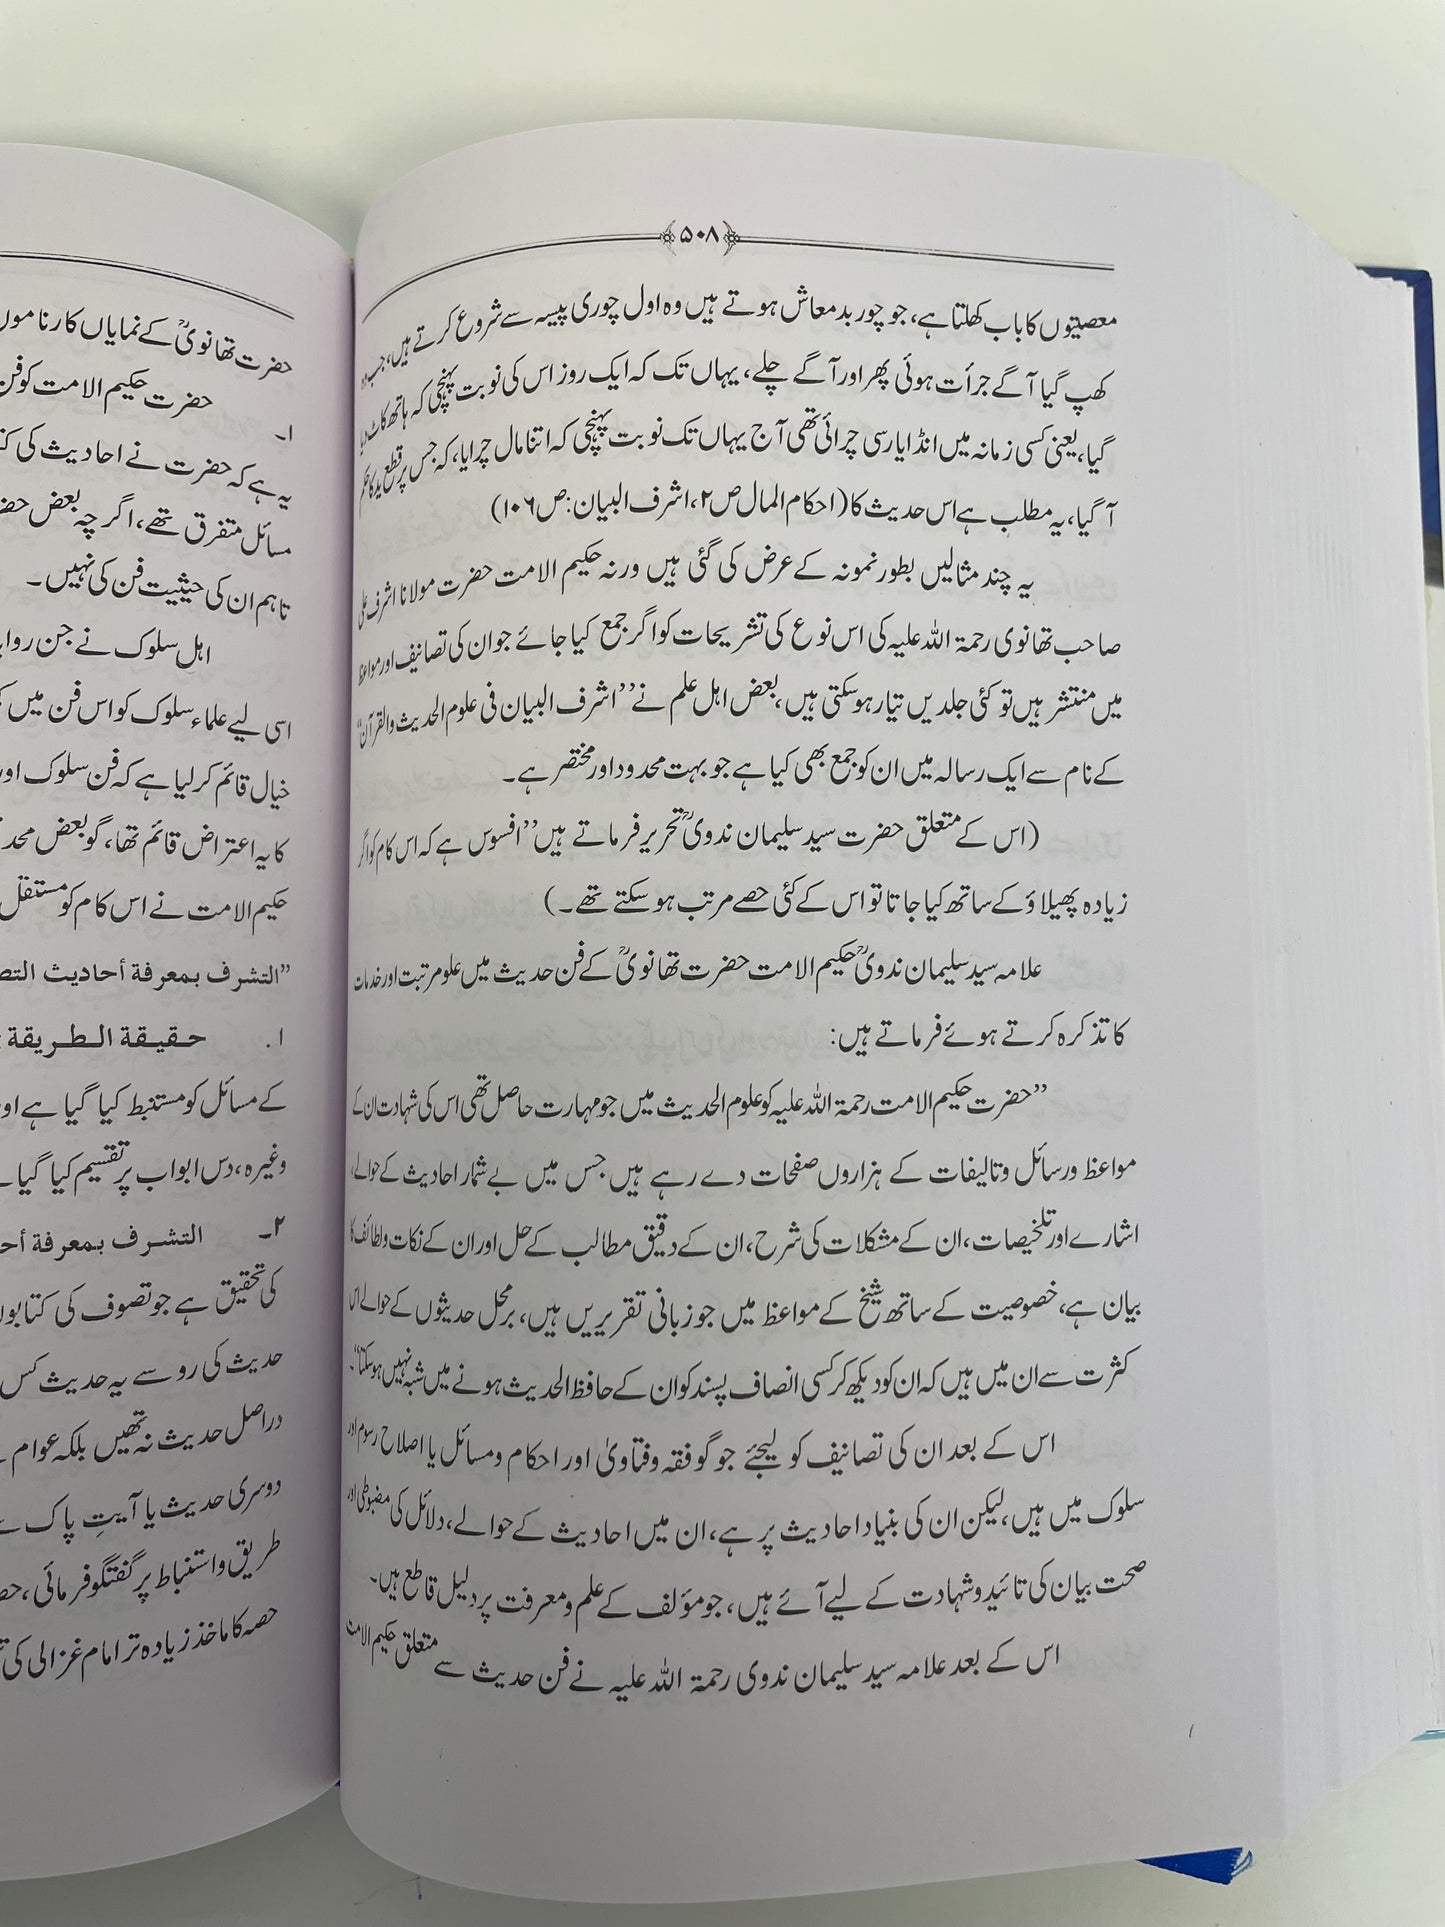 ۵۰۸
معصیتوں کا باب کھلتا ہے، جو چور بدمعاش ہوتے ہیں وہ اول چوری پیسہ سے شروع کرتے ہیں، جب وہ
کھپ گیا آگے جرأت ہوئی پھر اور آگے چلے، یہاں تک کہ ایک روز اس کی نوبت پہنچی کہ ہاتھ کاٹ دیا
گیا، یعنی کسی زمانہ میں انڈا یا رسی چرائی تھی آج یہاں تک نوبت پہنچی کہ اتنا مال چرایا، کہ جس پر قطع ید کا حکم
آ گیا، یہ مطلب ہے اس حدیث کا (احکام المال ص۲، اشرف البیان: ص۱۰۶)
یہ چند مثالیں بطور نمونہ کے عرض کی گئی ہیں ورنہ حکیم الامت حضرت مولانا اشرف علی
صاحب تھانوی رحمۃ اللہ علیہ کی اس نوع کی تشریحات کو اگر جمع کیا جائے جو ان کی تصانیف اور مواعظ
میں منتشر ہیں تو کئی جلدیں تیار ہو سکتی ہیں، بعض اہل علم نے ’’اشرف البیان فی علوم الحدیث والقرآن‘‘
کے نام سے ایک رسالہ میں ان کو جمع بھی کیا ہے جو بہت محدود اور مختصر ہے۔
(اس کے متعلق حضرت سید سلیمان ندویؒ تحریر فرماتے ہیں ’’افسوس ہے کہ اس کام کو اگر
زیادہ پھیلاؤ کے ساتھ کیا جاتا تو اس کے کئی حصے مرتب ہو سکتے تھے۔)
علامہ سید سلیمان ندویؒ حکیم الامت حضرت تھانویؒ کے فن حدیث میں علو مرتبت اور خدمات
کا تذکرہ کرتے ہوئے فرماتے ہیں:
’’حضرت حکیم الامت رحمۃ اللہ علیہ کو علوم الحدیث میں جو مہارت حاصل تھی اس کی شہادت ان کے
مواعظ ورسائل وتالیفات کے ہزاروں صفحات دے رہے ہیں جس میں بے شمار احادیث کے حوالے،
اشارے اور تلخیصات، ان کے مشکلات کی شرح، ان کے دقیق مطالب کے حل اور ان کے نکات ولطائف کا
بیان ہے، خصوصیت کے ساتھ شیخ کے مواعظ میں جو زبانی تقریریں ہیں، برمحل حدیثوں کے حوالے اس
کثرت سے ان میں ہیں کہ ان کو دیکھ کر کسی انصاف پسند کو ان کے حافظ الحدیث ہونے میں شبہ نہیں ہو سکتا‘‘۔
اس کے بعد ان کی تصانیف کو لیجئے جو گو فقہ وفتاویٰ اور احکام ومسائل یا اصلاح رسوم اور
سلوک میں ہیں، لیکن ان کی بنیاد احادیث پر ہے، ان میں احادیث کے حوالے، دلائل کی مضبوطی اور
صحت بیان کی تائید وشہادت کے لیے آئے ہیں، جو مؤلف کے علم ومعرفت پر دلیل قاطع ہیں۔
اس کے بعد علامہ سید سلیمان ندوی رحمۃ اللہ علیہ نے فن حدیث سے متعلق حکیم الامت
حضرت تھانویؒ کے نمایاں کارناموں
۱۔ حضرت حکیم الامت کو فن
یہ ہے کہ حضرت نے احادیث کی
مسائل متفرق تھے، اگر چہ بعض
تاہم ان کی حیثیت فن کی نہیں۔
اہل سلوک نے جن
اسی لیے علماء سلوک کو اس فن میں
خیال قائم کر لیا ہے کہ فن سلوک اور
کا یہ اعتراض قائم تھا، گو بعض
حکیم الامت نے اس کام کو مستقل
’’التشرف بمعرفة أحادیث
۱. حقیقة الطریقة
کے مسائل کو مستنبط کیا گیا ہے اور
وغیرہ، دس ابواب پر تقسیم کیا گیا
۲۔ التشرف بمعرفة
کی تحقیق ہے جو تصوف کی کتابوں
حدیث کی رو سے یہ حدیث کس
دراصل حدیث نہ تھیں بلکہ عوام
دوسری حدیث یا آیتِ پاک سے
طریق واستنباط پر گفتگو فرمائی،
حصہ کا ماخذ زیادہ تر امام غزالی کی